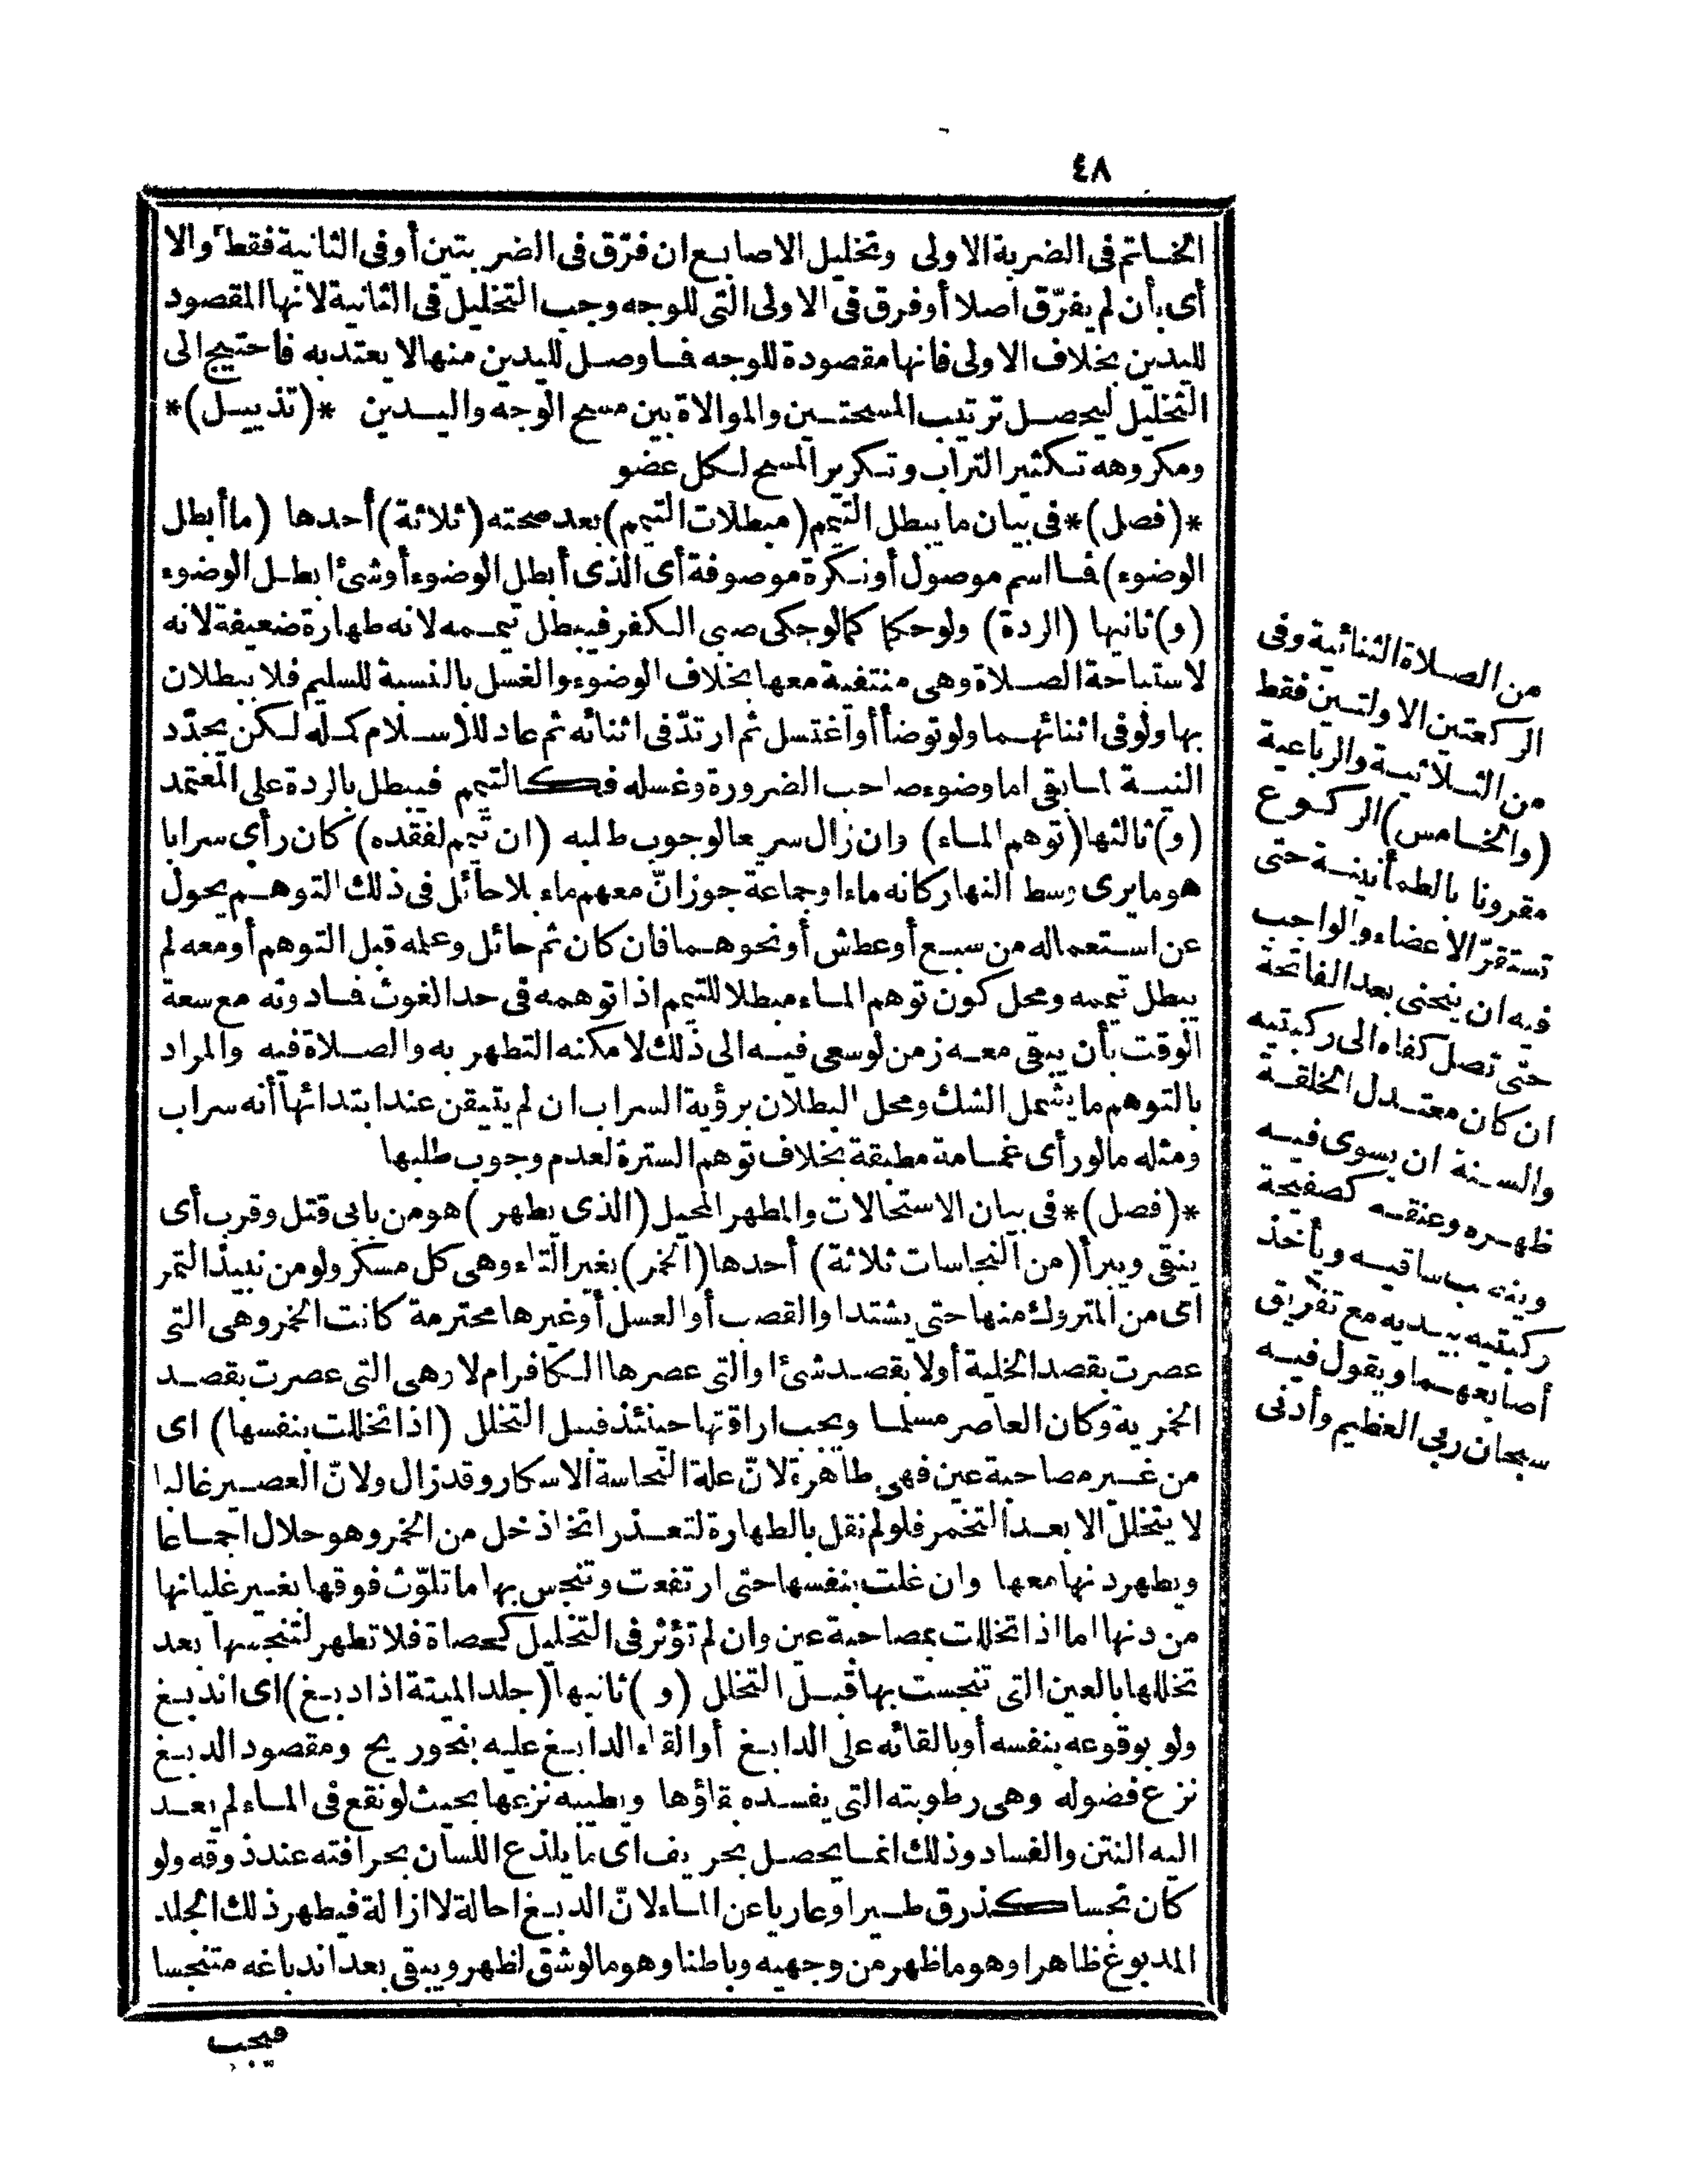 ٤٨
الخاتم فى الضربة الاولى وتخليل الاصابع ان فرّق فى الضربتين أو فى الثانية فقط والا
أى بأن لم يفرّق أصلا أو فرق فى الاولى التى للوجه وجب التخليل فى الثانية لانها المقصود
لليدين بخلاف الاولى فانها مقصودة للوجه فما وصل لليدين منها لا يعتد به فاحتيج الى
التخليل ليحصل ترتيب المسحتين والموالاة بين مسح الوجه واليدين *(تذييل)*
ومكروهه تكثير التراب وتكرير المسح لكل عضو
*(فصل)* فى بيان ما يبطل التيمم (مبطلات التيمم) بعد صحته (ثلاثة) أحدها (ما أبطل
الوضوء) فما اسم موصول أو نكرة موصوفة أى الذى أبطل الوضوء أو شئ ابطل الوضوء
(و) ثانيها (الردة) ولو حكما كما لو حكى صبى الكفر فيبطل تيممه لانه طهارة ضعيفة لانه
لاستباحة الصلاة وهى منتفية معها بخلاف الوضوء والغسل بالنسبة للسليم فلا يبطلان
بها ولو فى اثنائهما ولو توضأ أو اغتسل ثم ارتدّ فى اثنائه ثم عاد للاسلام كمله لكن يجدّد
النية لما بقى اما وضوء صاحب الضرورة وغسله فكالتيمم فيبطل بالردة على المعتمد
(و) ثالثها (توهم الماء) وان زال سريعا لوجوب طلبه (ان تيمم لفقده) كان رأى سرابا
هو ما يرى وسط النهار كانه ماء او جماعة جوز انّ معهم ماء بلا حائل فى ذلك التوهم يحول
عن استعماله من سبع أو عطش أو نحوهما فان كان ثم حائل وعلمه قبل التوهم أو معه لم
يبطل تيممه ومحل كون توهم الماء مبطلا للتيمم اذا توهمه فى حد الغوث فما دونه مع سعة
الوقت بأن يبقى معه زمن لو سعى فيه الى ذلك لامكنه التطهر به والصلاة فيه والمراد
بالتوهم ما يشمل الشك ومحل البطلان برؤية السراب ان لم يتيقن عند ابتدائها أنه سراب
ومثله ما لو رأى غمامة مطبقة بخلاف توهم السترة لعدم وجوب طلبها
*(فصل)* فى بيان الاستحالات والمطهر المحيل (الذى يطهر) هو من بابى قتل وقرب أى
ينقى ويبرأ (من النجاسات ثلاثة) أحدها (الخمر) بغير التاء وهى كل مسكر ولو من نبيذ التمر
اى من المتروك منها حتى يشتد او القصب أو العسل أو غيرها محترمة كانت الخمر وهى التى
عصرت بقصد الخلية أو لا بقصد شئ او التى عصرها الكافر ام لا وهى التى عصرت بقصد
الخمرية وكان العاصر مسلما ويجب اراقتها حينئذ قبل التخلل (اذا تخللت بنفسها) اى
من غير مصاحبة عين فهى طاهرة لانّ علة النجاسة الاسكار وقد زال ولانّ العصير غالبا
لا يتخلل الا بعد التخمر فلو لم نقل بالطهارة لتعذر اتخاذ خل من الخمر وهو حلال اجماعا
ويطهر دنها معها وان غلت بنفسها حتى ارتفعت وتنجس بها ما تلوّث فوقها بغير غليانها
من دنها اما اذا تخللت بمصاحبة عين وان لم تؤثر فى التخليل كحصاة فلا تطهر لتنجسها بعد
تخللها بالعين التى تنجست بها قبل التخلل (و) ثانيها (جلد الميتة اذا دبغ) اى اندبغ
ولو بوقوعه بنفسه أو بالقائه على الدابغ أو القاء الدابغ عليه بنحو ريح ومقصود الدبغ
نزع فضوله وهى رطوبته التى يفسده بقاؤها ويطيبه نزعها بحيث لو نقع فى الماء لم يعد
اليه النتن والفساد وذلك انما يحصل بحريف اى ما يلذع اللسان بحرافته عند ذوقه ولو
كان نجسا كذرق طير او عاريا عن الماء لانّ الدبغ احالة لا ازالة فيطهر ذلك الجلد
المدبوغ ظاهرا وهو ما ظهر من وجهيه وباطنا وهو ما لو شق لظهر ويبقى بعد اندباغه متنجسا
فيجب
من الصلاة الثنائية وفى
الركعتين الاولتين فقط
من الثلاثية والرباعية
(والخامس) الركوع
مقرونا بالطمأنينة حتى
تستقرّ الاعضاء والواجب
فيه ان ينحنى بعد الفاتحة
حتى تصل كفاه الى ركبتيه
ان كان معتدل الخلقة
والسنة ان يسوى فيه
ظهره وعنقه كصفيحة
وينصب ساقيه ويأخذ
ركبتيه بيديه مع تفريق
أصابعهما ويقول فيه
سبحان ربى العظيم وأدنى